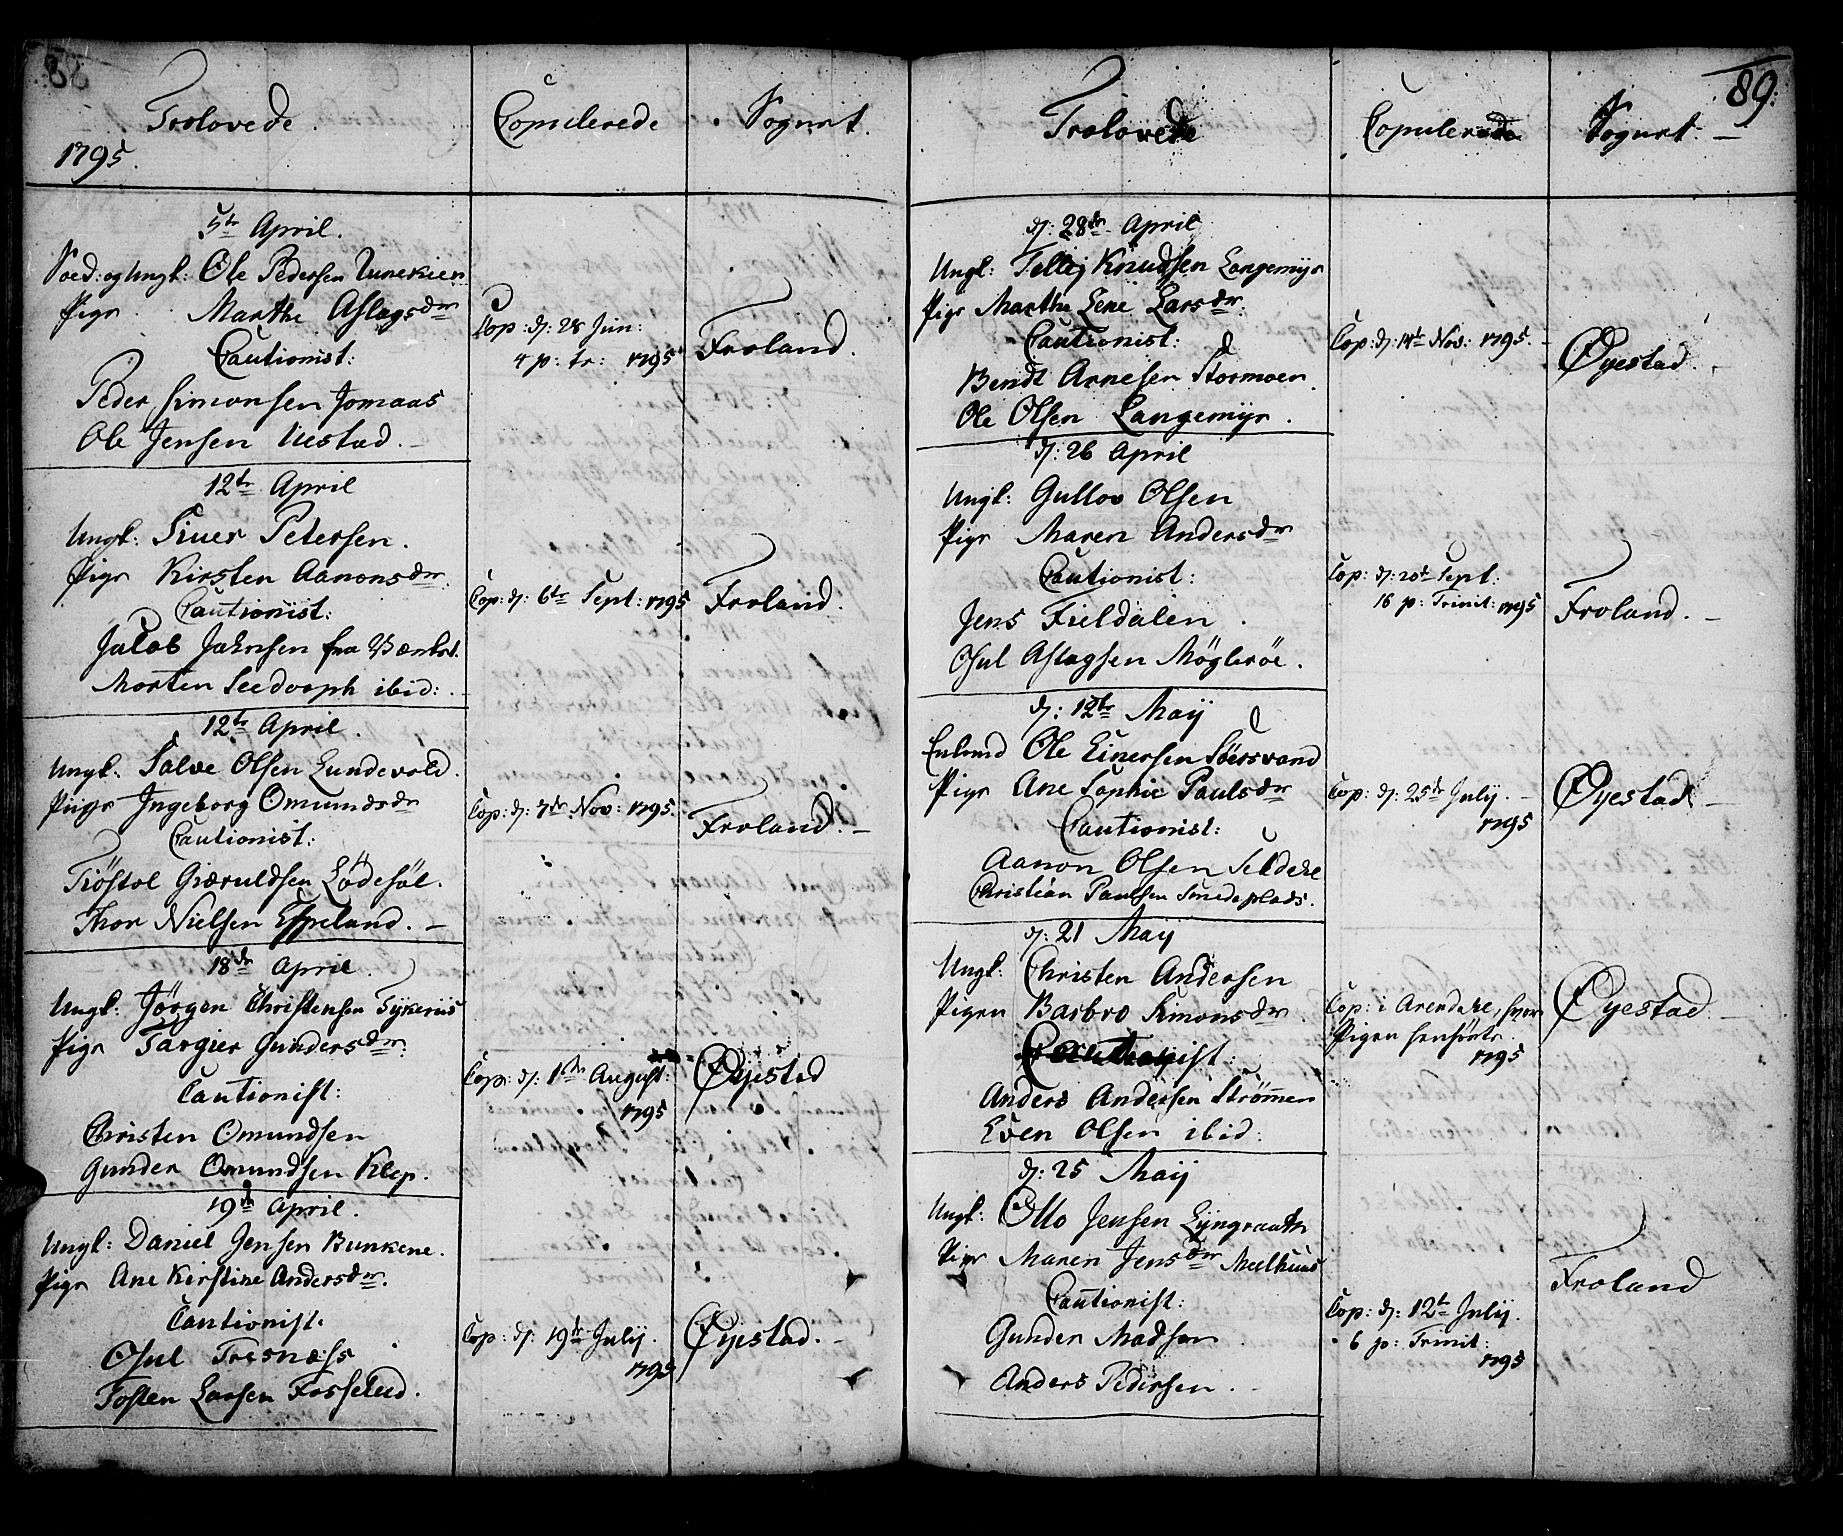 88
Trolovede.
Copulerede
Sognet.
1795.
5te April.
Soed: og Ungk: Ole Pedersen
Pige Marthe Aslagsdr
Cautionist:
Peder Simonsen Jomaas
Ole Jensen
Cop: d: 28 Jun:
4 p: tr: 1795
Froland.
12te April
Ungk: Siver Petersen.
Pige Kirsten Aanonsdr.
Cautionist:
Jacob Jahnsen fra
Morten Seedorph ibid:
Cop: d: 6te Sept: 1795
Froland.
12te April.
Ungk: Salve Olsen Lundevold.
Pige Ingeborg Omundsdr
Cautionist:
Tiöstol Gieruldsen Lödesöl.
Thor Nielsen Espeland.
Cop: d: 7de Nov: 1795.
Froland.
18de April.
Ungk: Jörgen Christensen
Pige Targier Gundersdr.
Cautionist:
Christen Omundsen
Gunder Omundsen Klep.
Cop: d: 1ste August:
1795
Øyestad
19de April.
Ungk: Daniel Jensen Bunkene.
Pige Ane Kirstine Andersdr.
Cautionist.
Osul Tresnæss
Tosten Larsen Fosselud.
Cop: d: 19de July.
1795
Øyestad.
89.
Trolovede
Copulerede
Sognet.
d: 28de April
Ungk: Tellej Knudsen Langemyr
Pige Marthe Lene Larsdr.
Cautionist:
Bendt Arnesen Stormoen.
Ole Olsen Langemyr.
Cop: d: 14de Nov: 1795.
Øyestad.
d: 26 April
Ungk: Gullov Olsen
Pige Maren Andersdr
Cautionist:
Jens Fieldalen
Osul Aslagsen Möglesöe.
Cop: d: 20de Sept:
16 p: Trinit: 1795
Froland.
d: 12te Maij
Enkmd Ole Einersen Söersvand
Pige Ane Sophie Paulsdr
Cautionist:
Aanon Olsen
Christian Paulsen Smedeplads.
Cop: d: 25de July.
1795
Øyestad
d: 21 Maij
Ungk: Christen Andersen
Pigen Barbro Simonsdr.
Cautionist:
Anders Andersen Strömmen
Even Olsen ibid:
Cop: i Arendahl, hvor
Pigen henhörte.
1795
Øyestad
d: 25 Maij
Ungk: Otto Jensen Lyngraath
Pige Maren Jensdr Meelhuus
Cautionist:
Gunder Madsen
Anders Pedersen.
Cop: d: 12te July.
6 p: Trinit:
1795
Froland